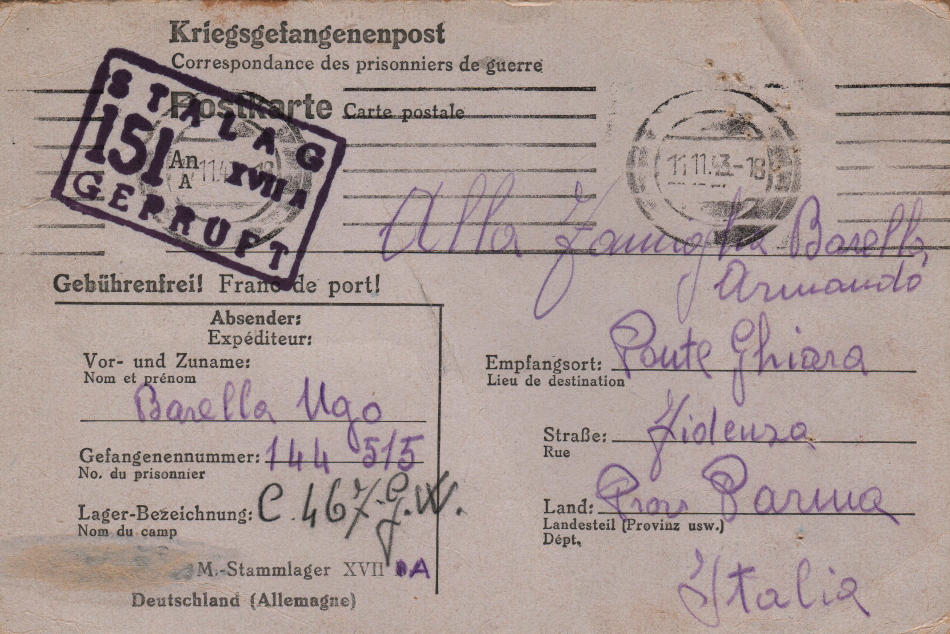 Kriegsgefangenenpost
Correspondance des prisonniers de guerre
Postkarte Carte postale
STALAG
151 XVII A
GEPRÜFT
An
A
11.11.43-18
Alla Famiglia Barella
Armando
Gebührenfrei! Franc de port!
Absender:
Expéditeur:
Vor- und Zuname:
Nom et prénom
Barella Ugo
Gefangenennummer: 144 515
No. du prisonnier
Lager-Bezeichnung: C. 467. G.W.
Nom du camp
M.-Stammlager XVII A
Deutschland (Allemagne)
Empfangsort: Ponte Ghiara
Lieu de destination
Straße: Fidenza
Rue
Land: Prov Parma
Landesteil (Provinz usw.)
Dépt.
Italia